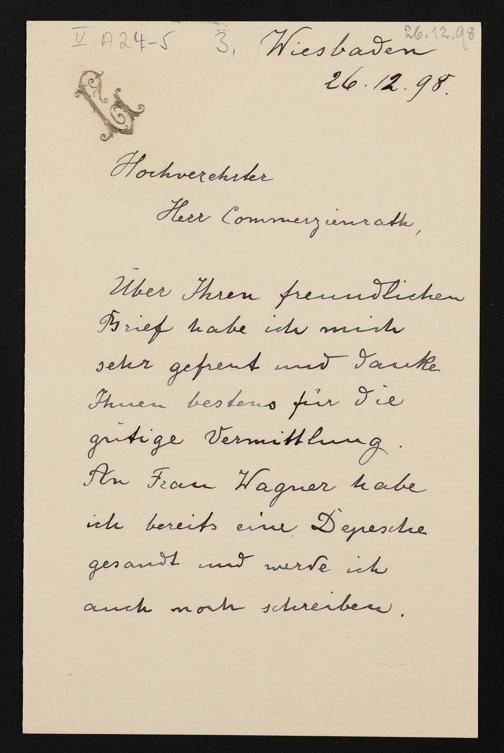 V A24-5 3, Wiesbaden 26.12.98
26.12.98.
Hochverehrter
Herr Commerzienrath,
Über Ihren freundlichen
Brief habe ich mich
sehr gefreut und danke
Ihnen bestens für die
gütige Vermittlung.
An Frau Wagner habe
ich bereits eine Depesche
gesandt und werde ich
auch noch schreiben.